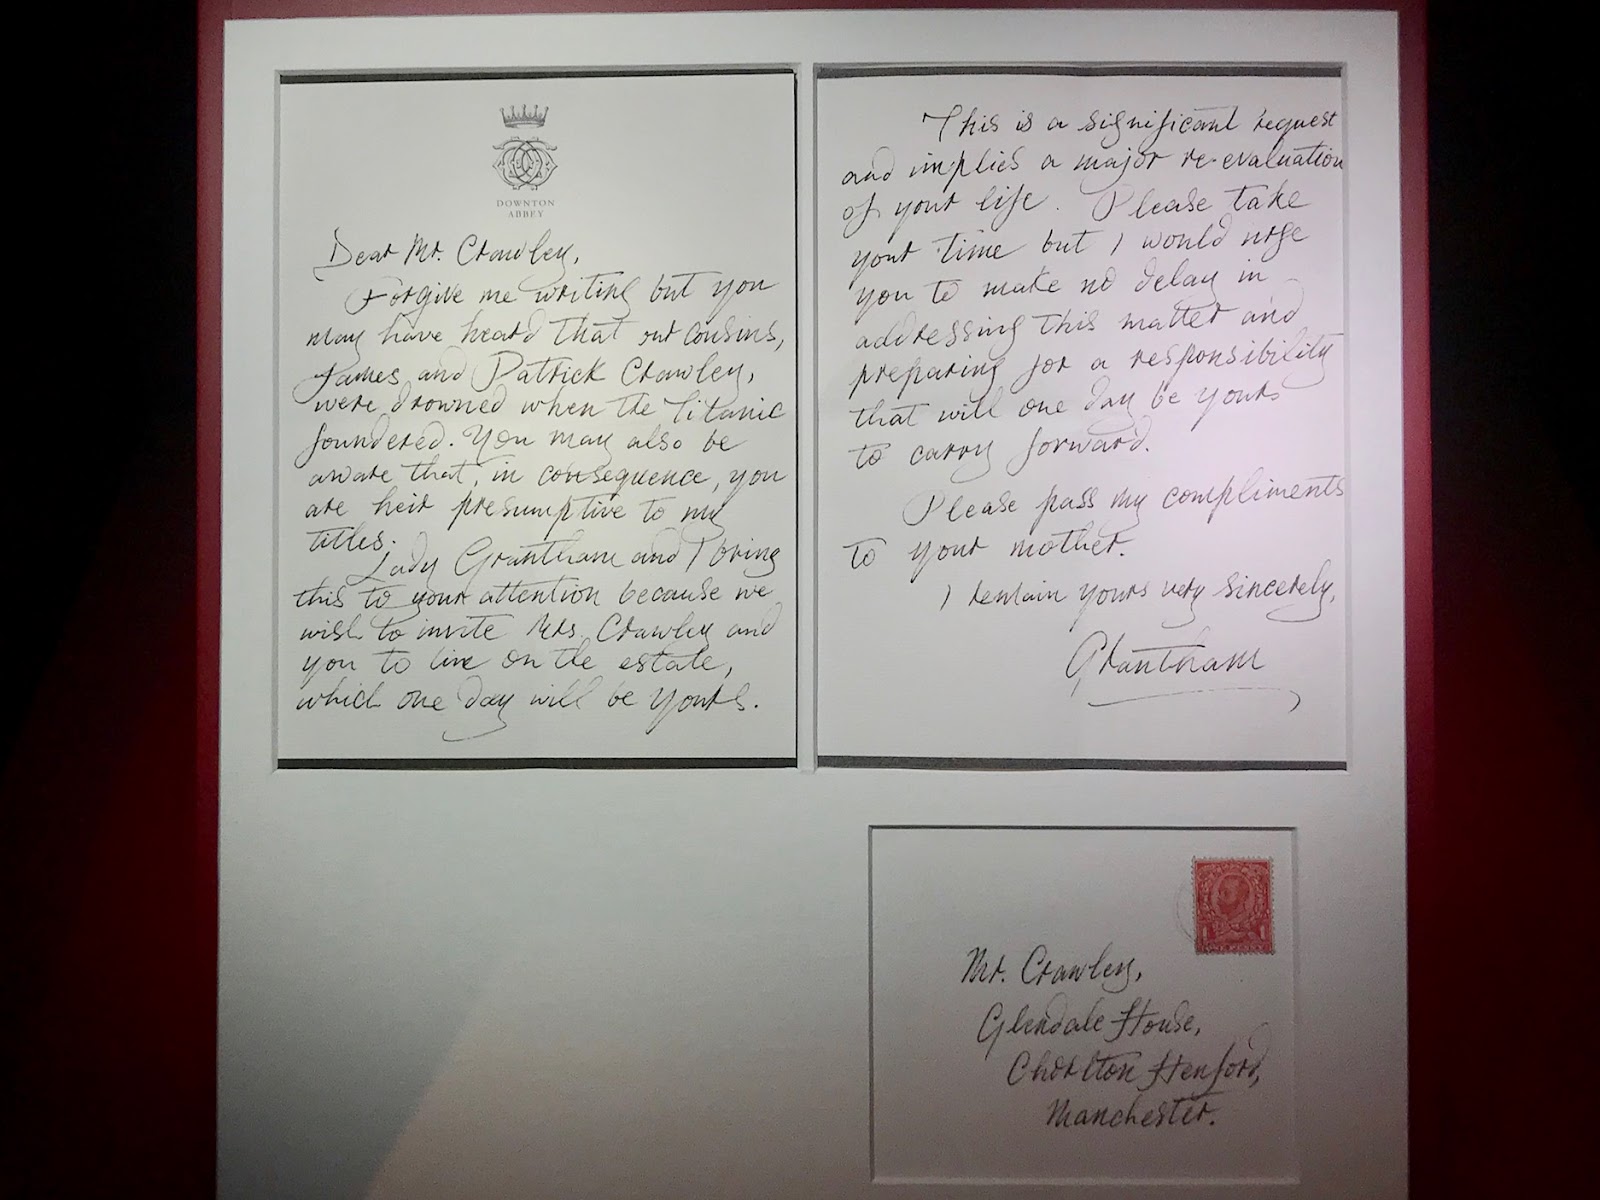 DOWNTON
ABBEY
Dear Mr. Crawley,
Forgive me writing but you
may have heard that our cousins,
James and Patrick Crawley,
were drowned when the Titanic
foundered. You may also be
aware that, in consequence, you
are heir presumptive to my
titles.
Lady Grantham and I bring
this to your attention because we
wish to invite Mrs. Crawley and
you to live on the estate,
which one day will be yours.
This is a significant request
and implies a major re-evaluation
of your life. Please take
your time but I would urge
you to make no delay in
addressing this matter and
preparing for a responsibility
that will one day be yours
to carry forward.
Please pass my compliments
to your mother.
I remain yours very sincerely,
Grantham
1 1
ONE PENNY
Mr. Crawley,
Glendale House,
Chorlton Henford,
Manchester.